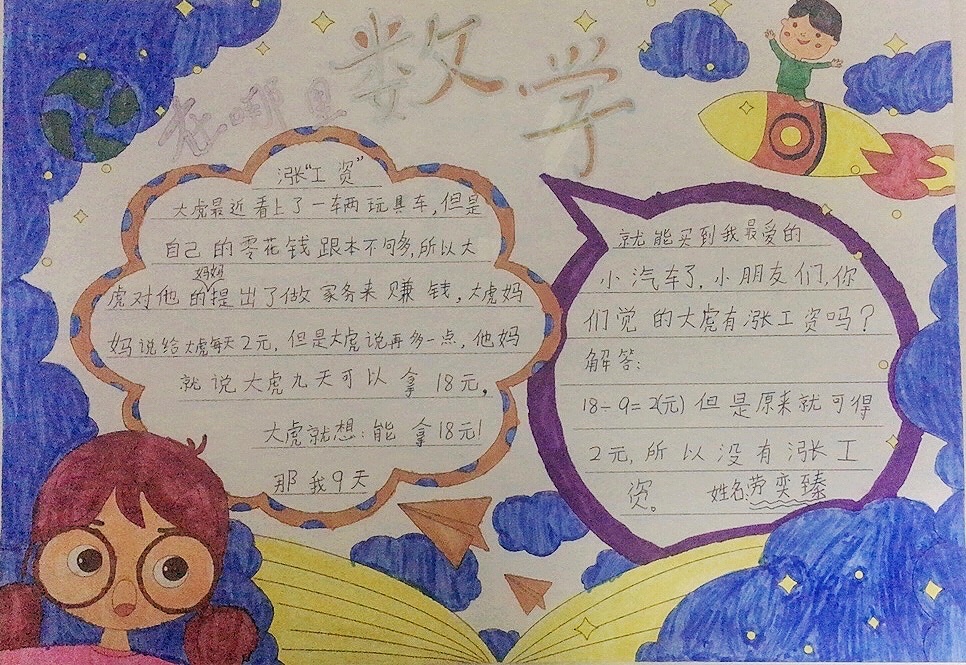 数学
在哪里
涨“工资”
大虎最近看上了一车两玩具车,但是
自己的零花钱跟本不同够,所以大
妈妈
虎对他的提出了做家务来赚钱,大虎妈
妈说给大虎每天2元,但是大虎说再多一点,他妈
就说大虎九天可以拿18元,
大虎就想:能拿18元!
那我9天
就能买到我最爱的
小汽车了,小朋友们,你
们觉的大虎有涨工资吗?
解答:
18-9=2(元)但是原来就可得
2元,所以没有涨工
资。
姓名:劳奕臻